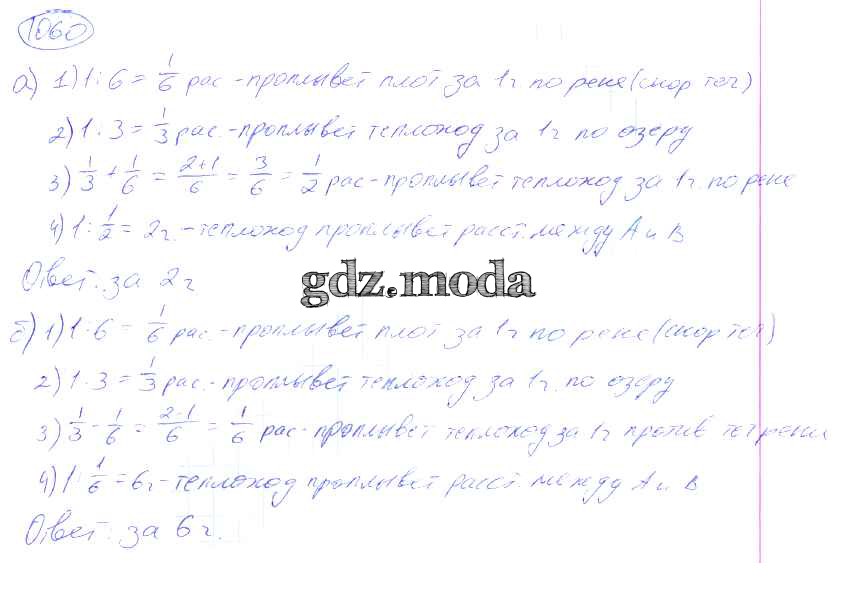 1060
а) 1) 1 : 6 = 1/6 рас - проплывет плот за 1 ч по реке (скор теч)
2) 1 : 3 = 1/3 рас. - проплывет теплоход за 1 ч по озеру
3) 1/3 + 1/6 = 2+1/6 = 3/6 = 1/2 рас - проплывет теплоход за 1 ч. по реке
4) 1 : 1/2 = 2 ч. - теплоход проплывет расст. между А и В
Ответ: за 2 ч
gdz.moda
б) 1) 1 : 6 = 1/6 рас. - проплывет плот за 1 ч по реке (скор теч)
2) 1 : 3 = 1/3 рас. - проплывет теплоход за 1 ч. по озеру
3) 1/3 - 1/6 = 2-1/6 = 1/6 рас - проплывет теплоход за 1 ч против теч реки
4) 1 : 1/6 = 6 ч - теплоход проплывет расст. между А и В
Ответ: за 6 ч.